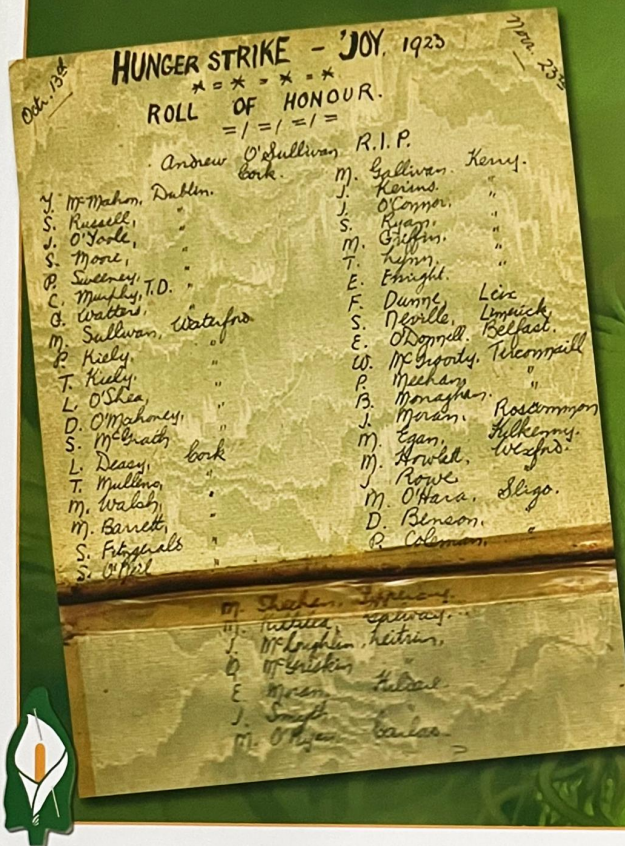 Octr. 13th
HUNGER STRIKE - 'JOY, 1923
Novr. 23rd
* = * = * = *
ROLL OF HONOUR.
= / = / = / =
Andrew O'Sullivan R.I.P.
Cork.
Y. McMahon, Dublin.
S. Russell, "
J. O'Toole, "
S. Moore, "
P. Sweeney, "
C. Murphy, T.D. "
G. Watters, "
M. Sullivan, Waterford
P. Kiely, "
T. Kiely, "
L. O'Shea, "
D. O'Mahoney, "
S. McGrath "
L. Deasy, Cork
T. Mullins, "
M. Walsh, "
M. Barrett, "
S. Fitzgerald "
S. O'Neil "
M. Gallivan. Kerry.
J. Kerins. "
J. O'Connor. "
S. Ryan. "
M. Griffin. "
T. Lynn. "
E. Enright. "
F. Dunne, Leix
S. Neville, Limerick
E. O'Donnell. Belfast.
W. McGrorty. Tirconnaill
P. Meehan, "
B. Monaghan. "
J. Moran. Roscommon
M. Egan. Kilkenny.
M. Howlett. Wexford.
J. Rowe "
M. O'Hara. Sligo.
D. Benson. "
P. Coleman. "
M. Sheehan. Tipperary.
M. Galway.
J. McLoughlin, Leitrim,
McGriskin "
E Moran Kildare
J. Smyth "
M. O'Ryan Carlow